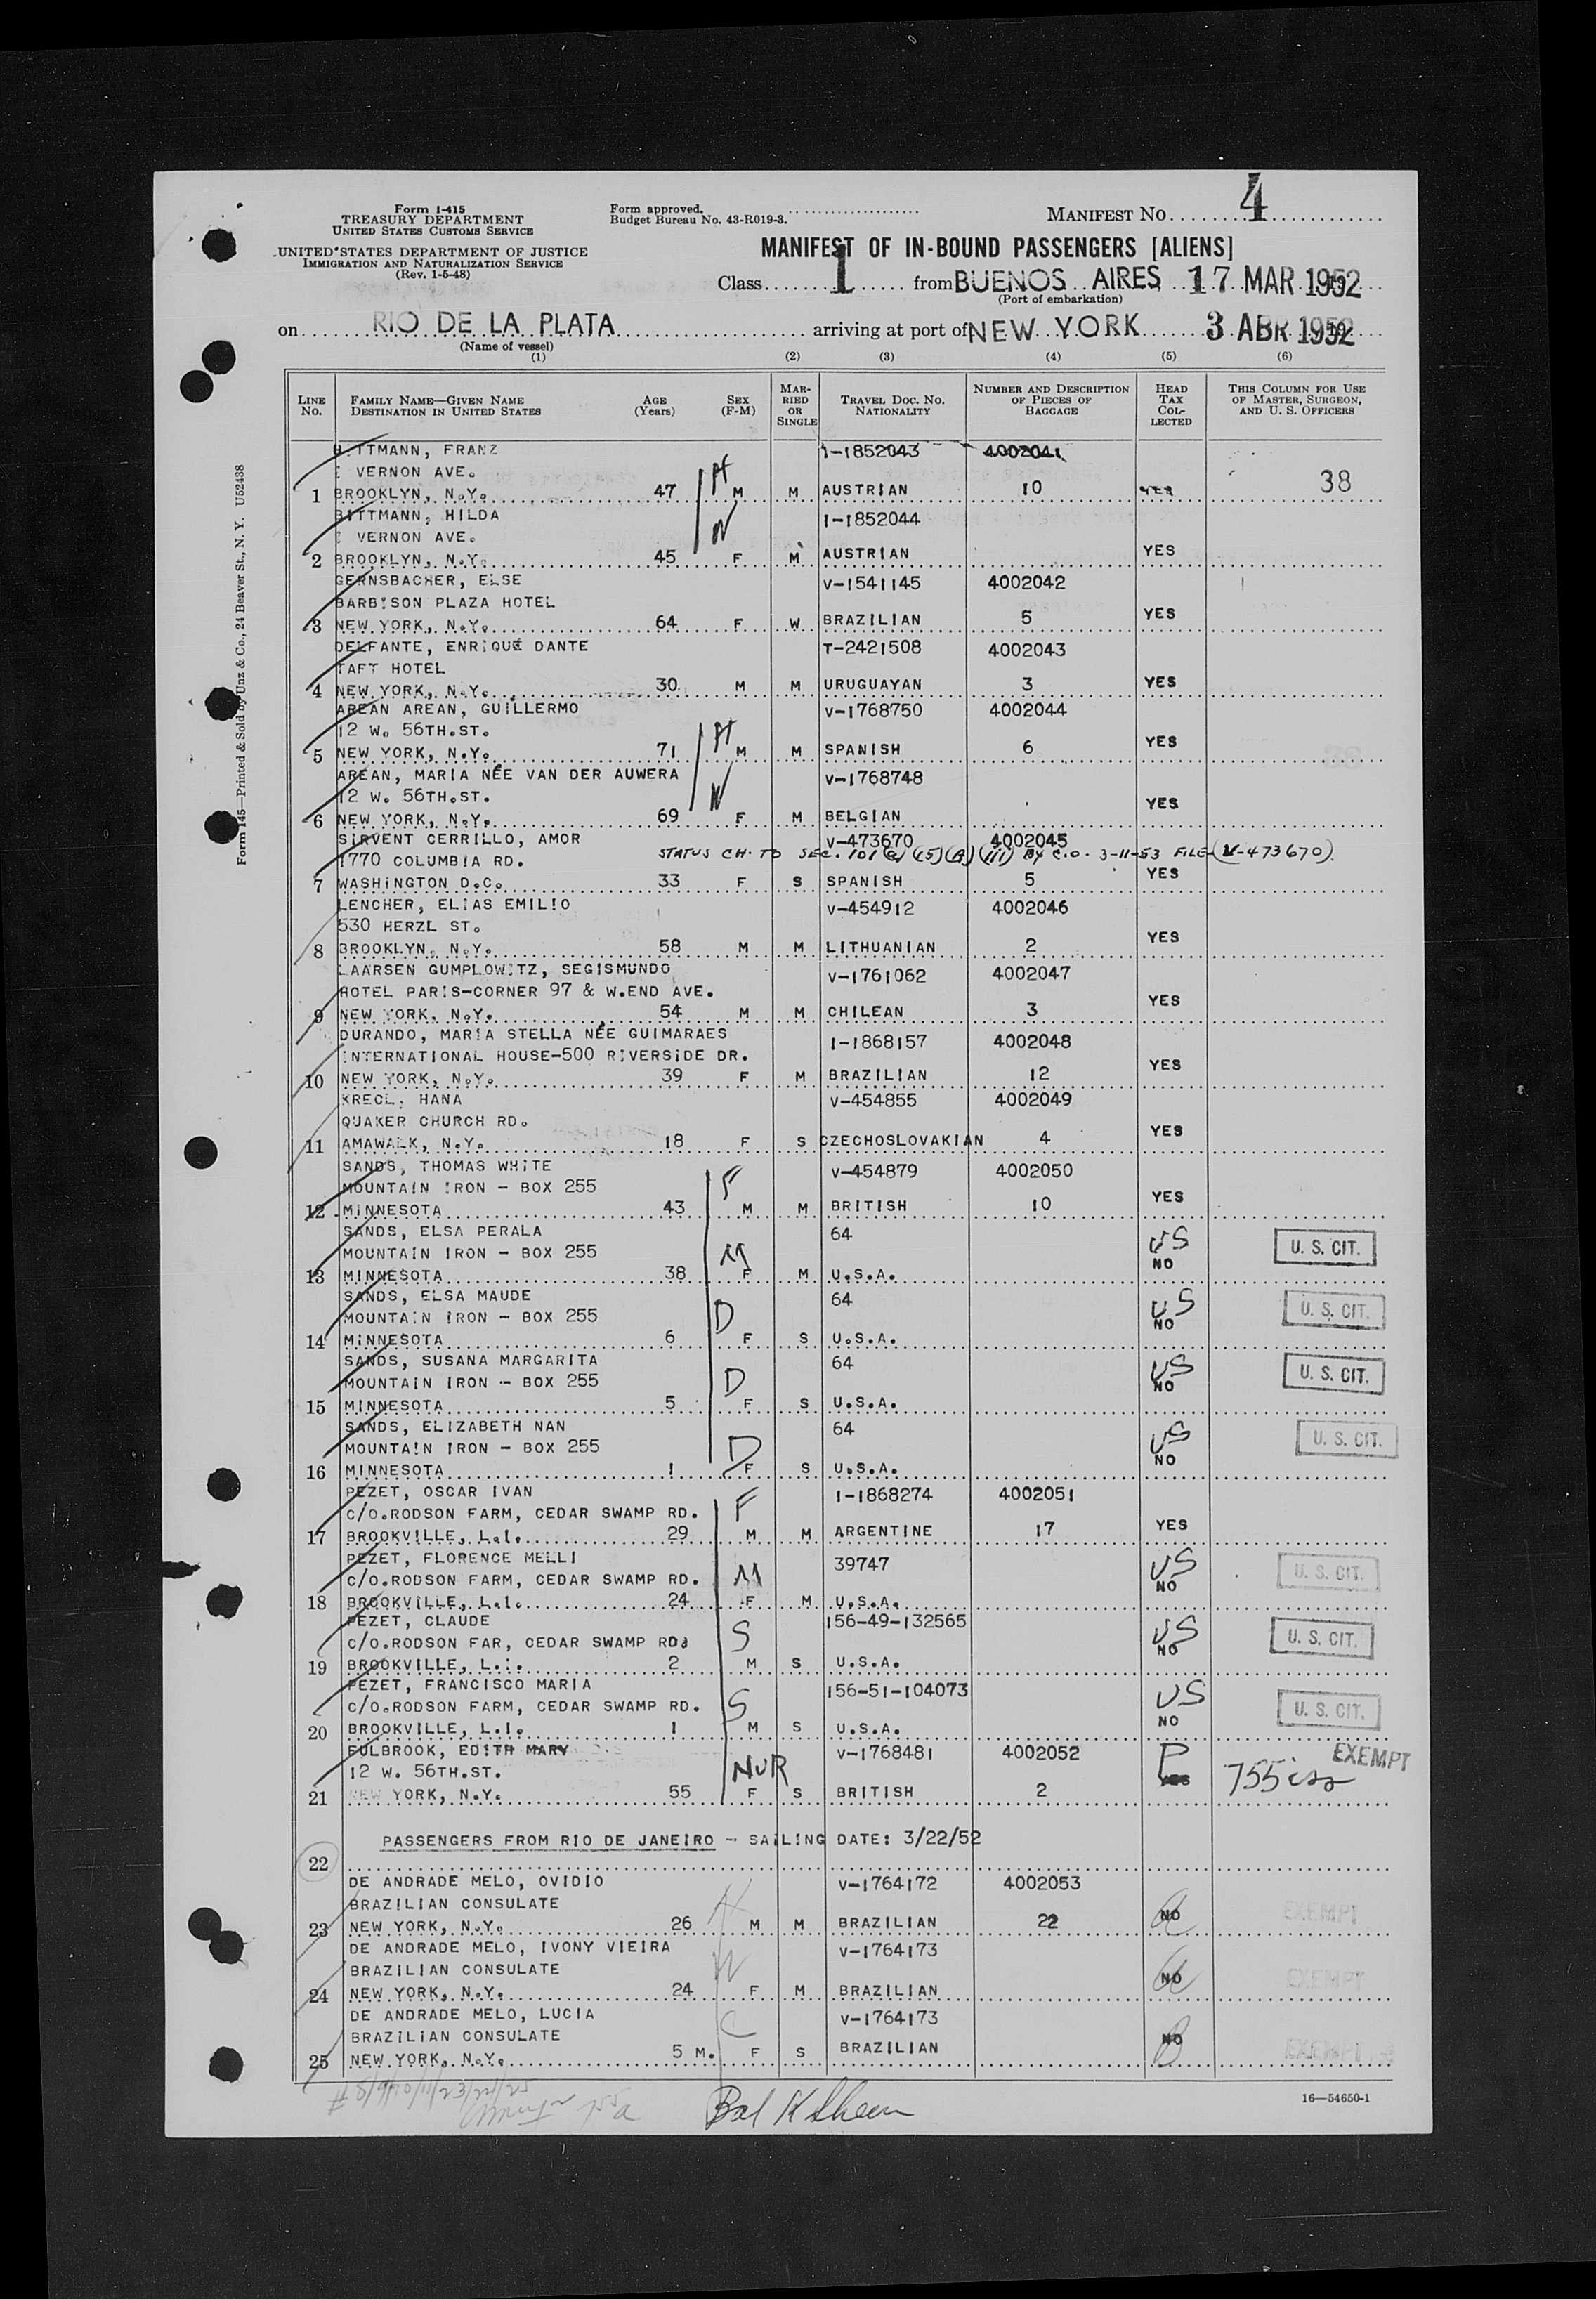 Form I-415
TREASURY DEPARTMENT
UNITED STATES CUSTOMS SERVICE
UNITED STATES DEPARTMENT OF JUSTICE
IMMIGRATION AND NATURALIZATION SERVICE
(Rev. 1-5-48)
Form approved.
Budget Bureau No. 43-R019-3.
MANIFEST NO. 4
MANIFEST OF IN-BOUND PASSENGERS [ALIENS]
Class 1 from BUENOS AIRES 17 MAR 1952
(Port of embarkation)
on RIO DE LA PLATA arriving at port of NEW YORK 3 ABR 1952
(Name of vessel)
(1) (2) (3) (4) (5) (6)
LINE No. FAMILY NAME—GIVEN NAME DESTINATION IN UNITED STATES AGE (Years) SEX (F-M) MARRIED OR SINGLE TRAVEL DOC. NO. NATIONALITY NUMBER AND DESCRIPTION OF PIECES OF BAGGAGE HEAD TAX COLLECTED THIS COLUMN FOR USE OF MASTER, SURGEON, AND U. S. OFFICERS
BITTMANN, FRANZ I-1852043 4002041
VERNON AVE. H 38
1 BROOKLYN, N.Y. 47 M M AUSTRIAN 10 YES
BITTMANN, HILDA I-1852044
VERNON AVE. W
2 BROOKLYN, N.Y. 45 F M AUSTRIAN YES
GERNSBACHER, ELSE V-1541145 4002042
BARBISON PLAZA HOTEL
3 NEW YORK, N.Y. 64 F W BRAZILIAN 5 YES
DELFANTE, ENRIQUE DANTE T-2421508 4002043
TAFT HOTEL
4 NEW YORK, N.Y. 30 M M URUGUAYAN 3 YES
AREAN AREAN, GUILLERMO V-1768750 4002044
12 W. 56TH.ST. H
5 NEW YORK, N.Y. 71 M M SPANISH 6 YES
AREAN, MARIA NÉE VAN DER AUWERA V-1768748
12 W. 56TH.ST. W
6 NEW YORK, N.Y. 69 F M BELGIAN YES
SIRVENT CERRILLO, AMOR V-473670 4002045
1770 COLUMBIA RD. STATUS CH. TO SEC. 101 (a) (15) (A) (iii) BY C.O. 3-11-53 FILE (V-473670).
7 WASHINGTON D.C. 33 F S SPANISH 5 YES
LENCHER, ELIAS EMILIO V-454912 4002046
530 HERZL ST.
8 BROOKLYN, N.Y. 58 M M LITHUANIAN 2 YES
LAARSEN GUMPLOWITZ, SEGISMUNDO V-1761062 4002047
HOTEL PARIS-CORNER 97 & W.END AVE.
9 NEW YORK, N.Y. 54 M M CHILEAN 3 YES
DURANDO, MARIA STELLA NÉE GUIMARAES I-1868157 4002048
INTERNATIONAL HOUSE-500 RIVERSIDE DR.
10 NEW YORK, N.Y. 39 F M BRAZILIAN 12 YES
KRECL, HANA V-454855 4002049
QUAKER CHURCH RD.
11 AMAWALK, N.Y. 18 F S CZECHOSLOVAKIAN 4 YES
SANDS, THOMAS WHITE V-454879 4002050
MOUNTAIN IRON - BOX 255 F
12 MINNESOTA 43 M M BRITISH 10 YES
SANDS, ELSA PERALA 64
MOUNTAIN IRON - BOX 255 M US U. S. CIT.
13 MINNESOTA 38 F M U.S.A. NO
SANDS, ELSA MAUDE 64
MOUNTAIN IRON - BOX 255 D US U. S. CIT.
14 MINNESOTA 6 F S U.S.A. NO
SANDS, SUSANA MARGARITA 64
MOUNTAIN IRON - BOX 255 D US U. S. CIT.
15 MINNESOTA 5 F S U.S.A. NO
SANDS, ELIZABETH NAN 64
MOUNTAIN IRON - BOX 255 D US U. S. CIT.
16 MINNESOTA 1 F S U.S.A. NO
PEZET, OSCAR IVAN I-1868274 4002051
C/O.RODSON FARM, CEDAR SWAMP RD. F
17 BROOKVILLE, L.I. 29 M M ARGENTINE 17 YES
PEZET, FLORENCE MELLI 39747
C/O.RODSON FARM, CEDAR SWAMP RD. M US U. S. CIT.
18 BROOKVILLE, L.I. 24 F M U.S.A. NO
PEZET, CLAUDE 156-49-132565
C/O.RODSON FAR, CEDAR SWAMP RD. S US U. S. CIT.
19 BROOKVILLE, L.I. 2 M S U.S.A. NO
PEZET, FRANCISCO MARIA 156-51-104073
C/O.RODSON FARM, CEDAR SWAMP RD. S US U. S. CIT.
20 BROOKVILLE, L.I. 1 M S U.S.A. NO
FULBROOK, EDITH MARY V-1768481 4002052 P EXEMPT
12 W. 56TH.ST. NUR 755
21 NEW YORK, N.Y. 55 F S BRITISH 2 YES
PASSENGERS FROM RIO DE JANEIRO - SAILING DATE: 3/22/52
22
DE ANDRADE MELO, OVIDIO V-1764172 4002053
BRAZILIAN CONSULATE H EXEMPT
23 NEW YORK, N.Y. 26 M M BRAZILIAN 22 NO
DE ANDRADE MELO, IVONY VIEIRA V-1764173
BRAZILIAN CONSULATE W EXEMPT
24 NEW YORK, N.Y. 24 F M BRAZILIAN NO
DE ANDRADE MELO, LUCIA V-1764173
BRAZILIAN CONSULATE C EXEMPT
25 NEW YORK, N.Y. 5 M. F S BRAZILIAN NO
16—54650-1
Form 145—Printed & Sold by Unz & Co., 24 Beaver St., N. Y. U52438